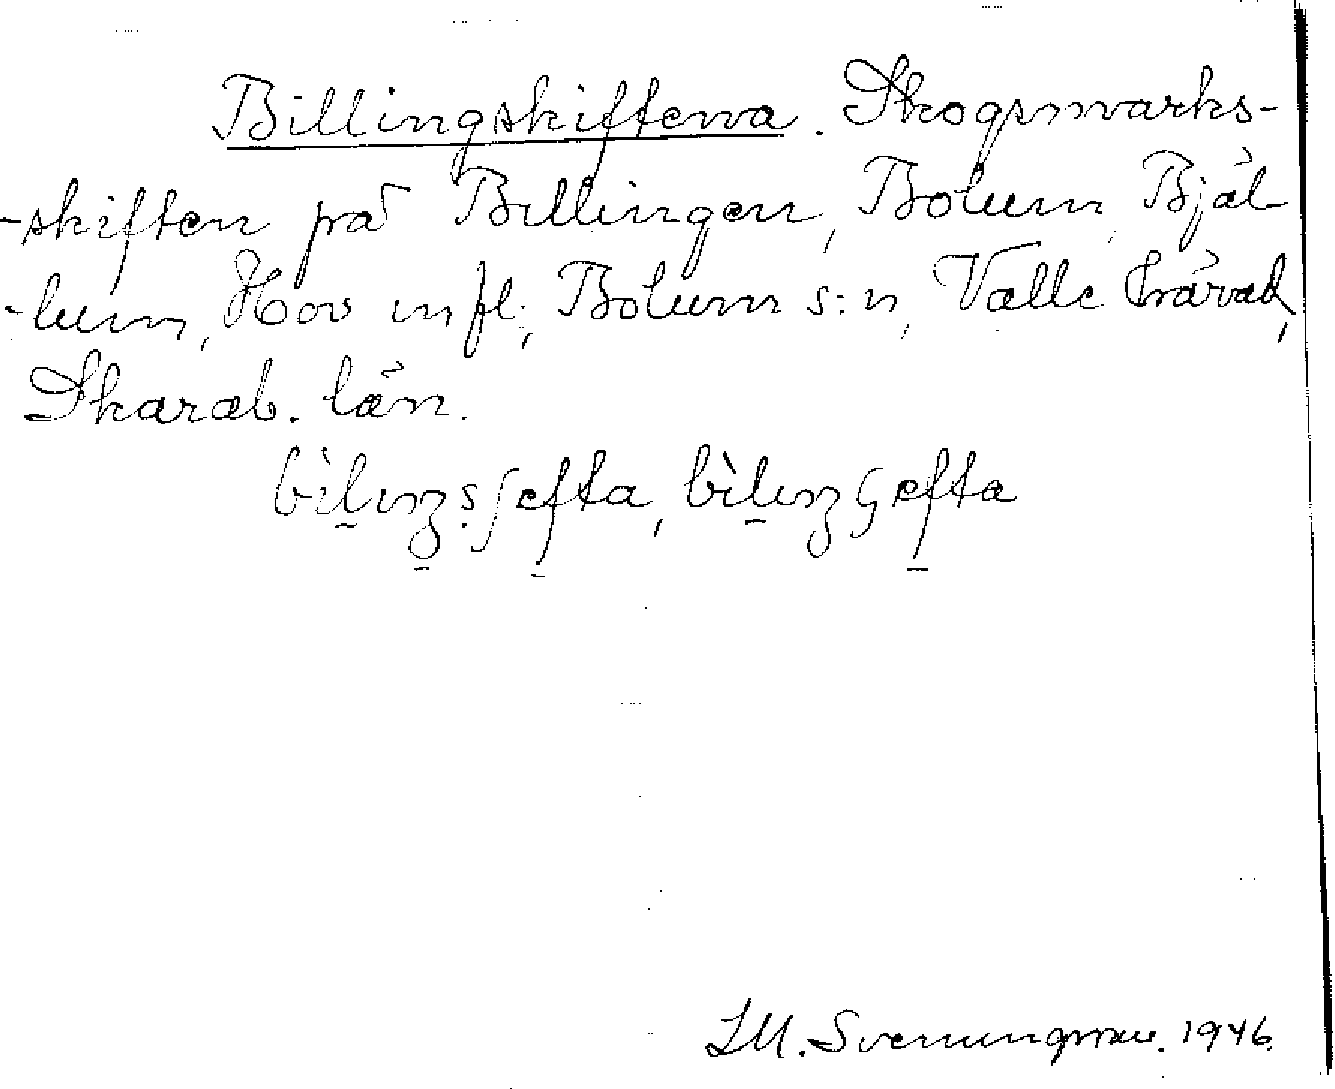 Billingskiftena. Skogsmarks-
-skiften på Billingen, Bolum, Bjäl-
-lum, Hov m fl., Bolum s:n, Valle härad,
Skarab. län.
bìlıŋsʃefta, bìlıŋʃefta
S.M. Svenungsson. 1946.